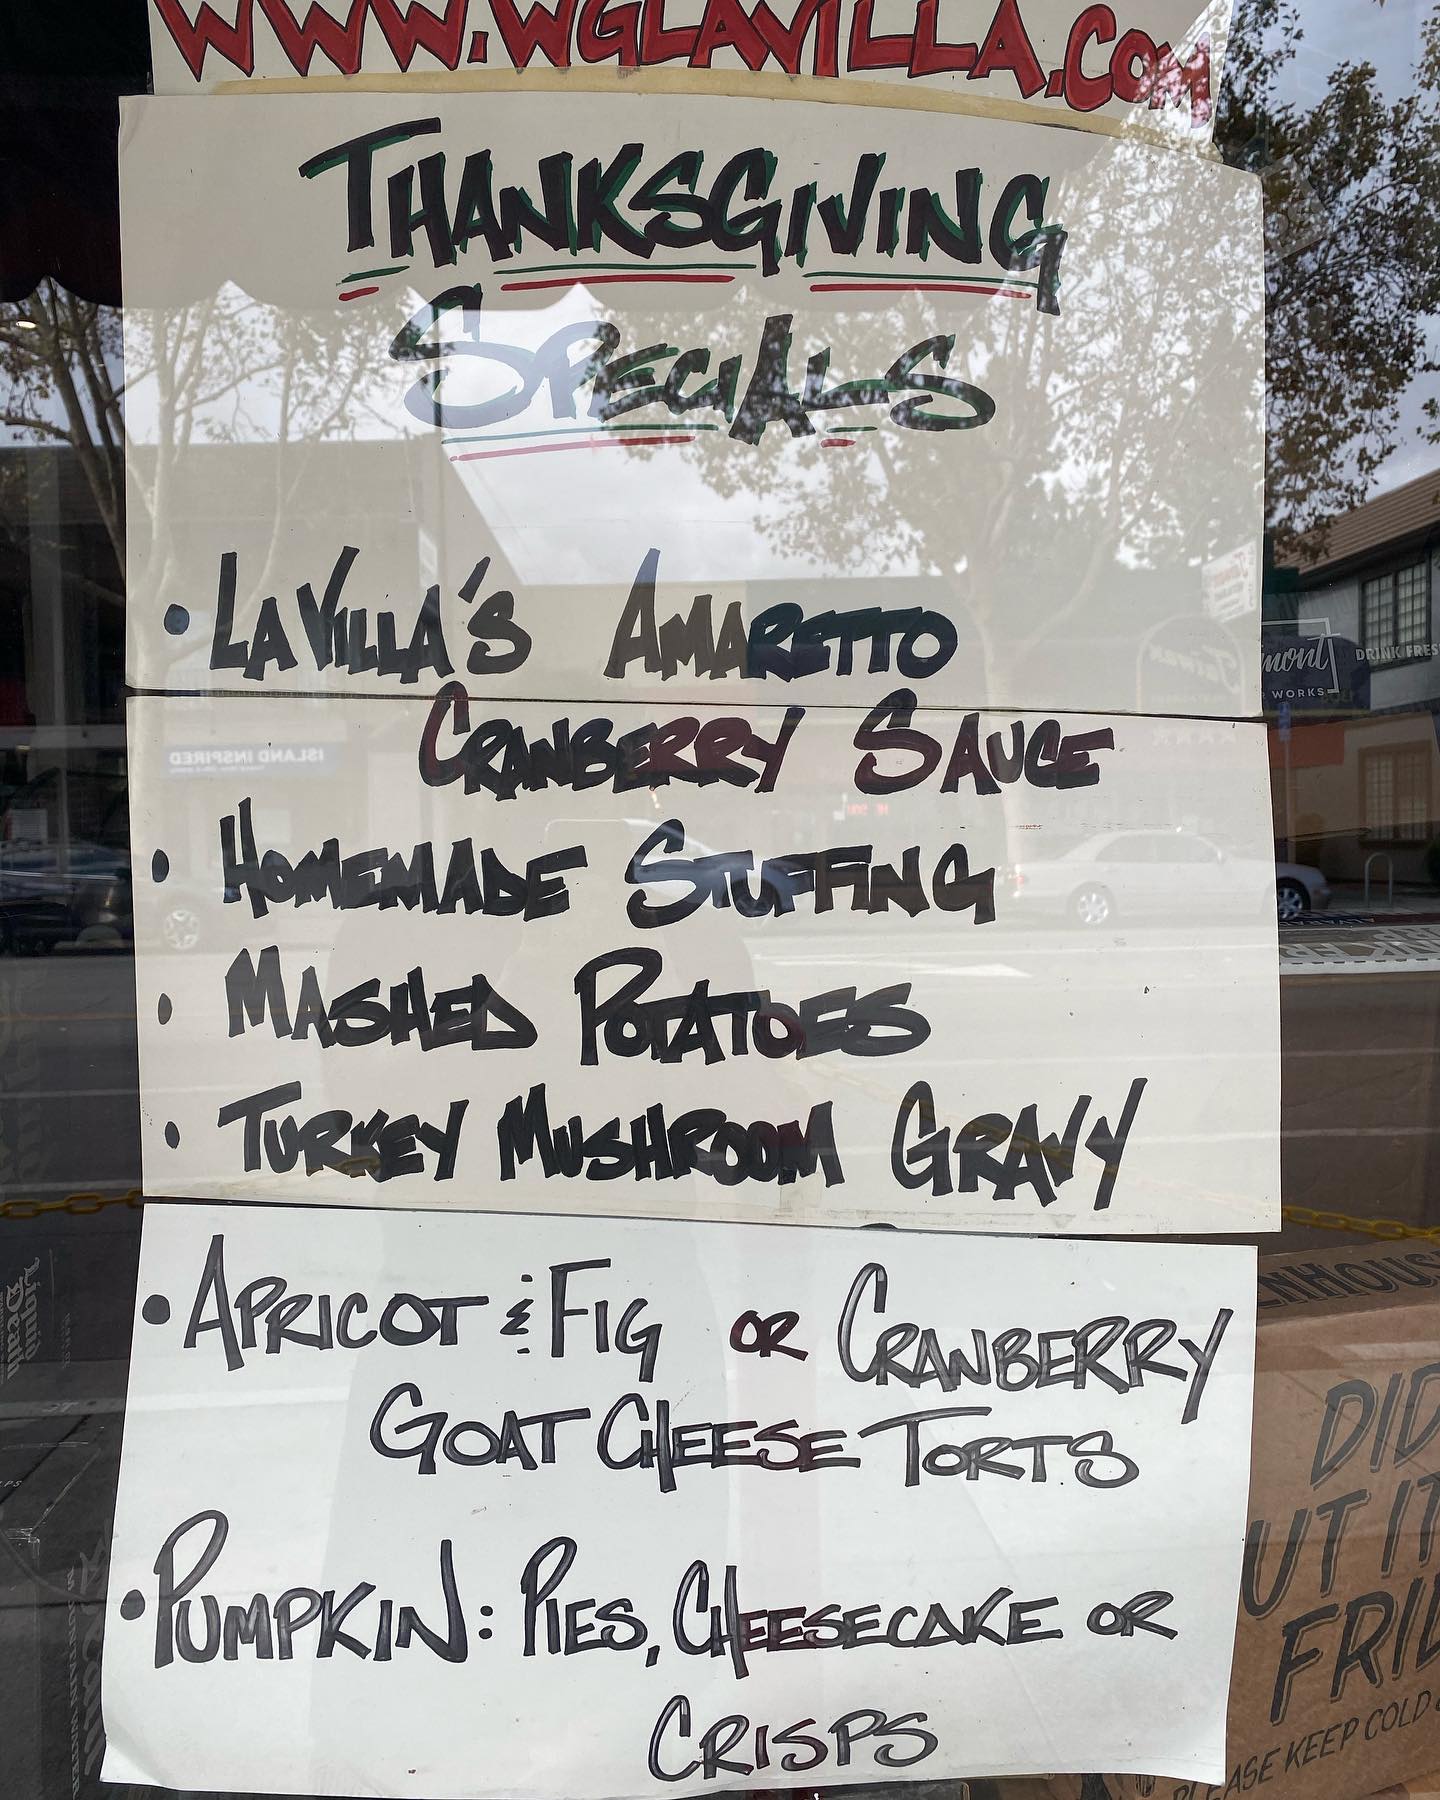 WWW.WGLAVILLA.COM
THANKSGIVING
SPECIALS
• LAVILLA'S AMARETTO
CRANBERRY SAUCE
• HOMEMADE STUFFING
• MASHED POTATOES
• TURKEY MUSHROOM GRAVY
• APRICOT & FIG OR CRANBERRY
GOAT CHEESE TORTS
• PUMPKIN: PIES, CHEESECAKE OR
CRISPS
ISLAND INSPIRED
DRINK
WORKS
DID
IT
PLEASE KEEP COLD